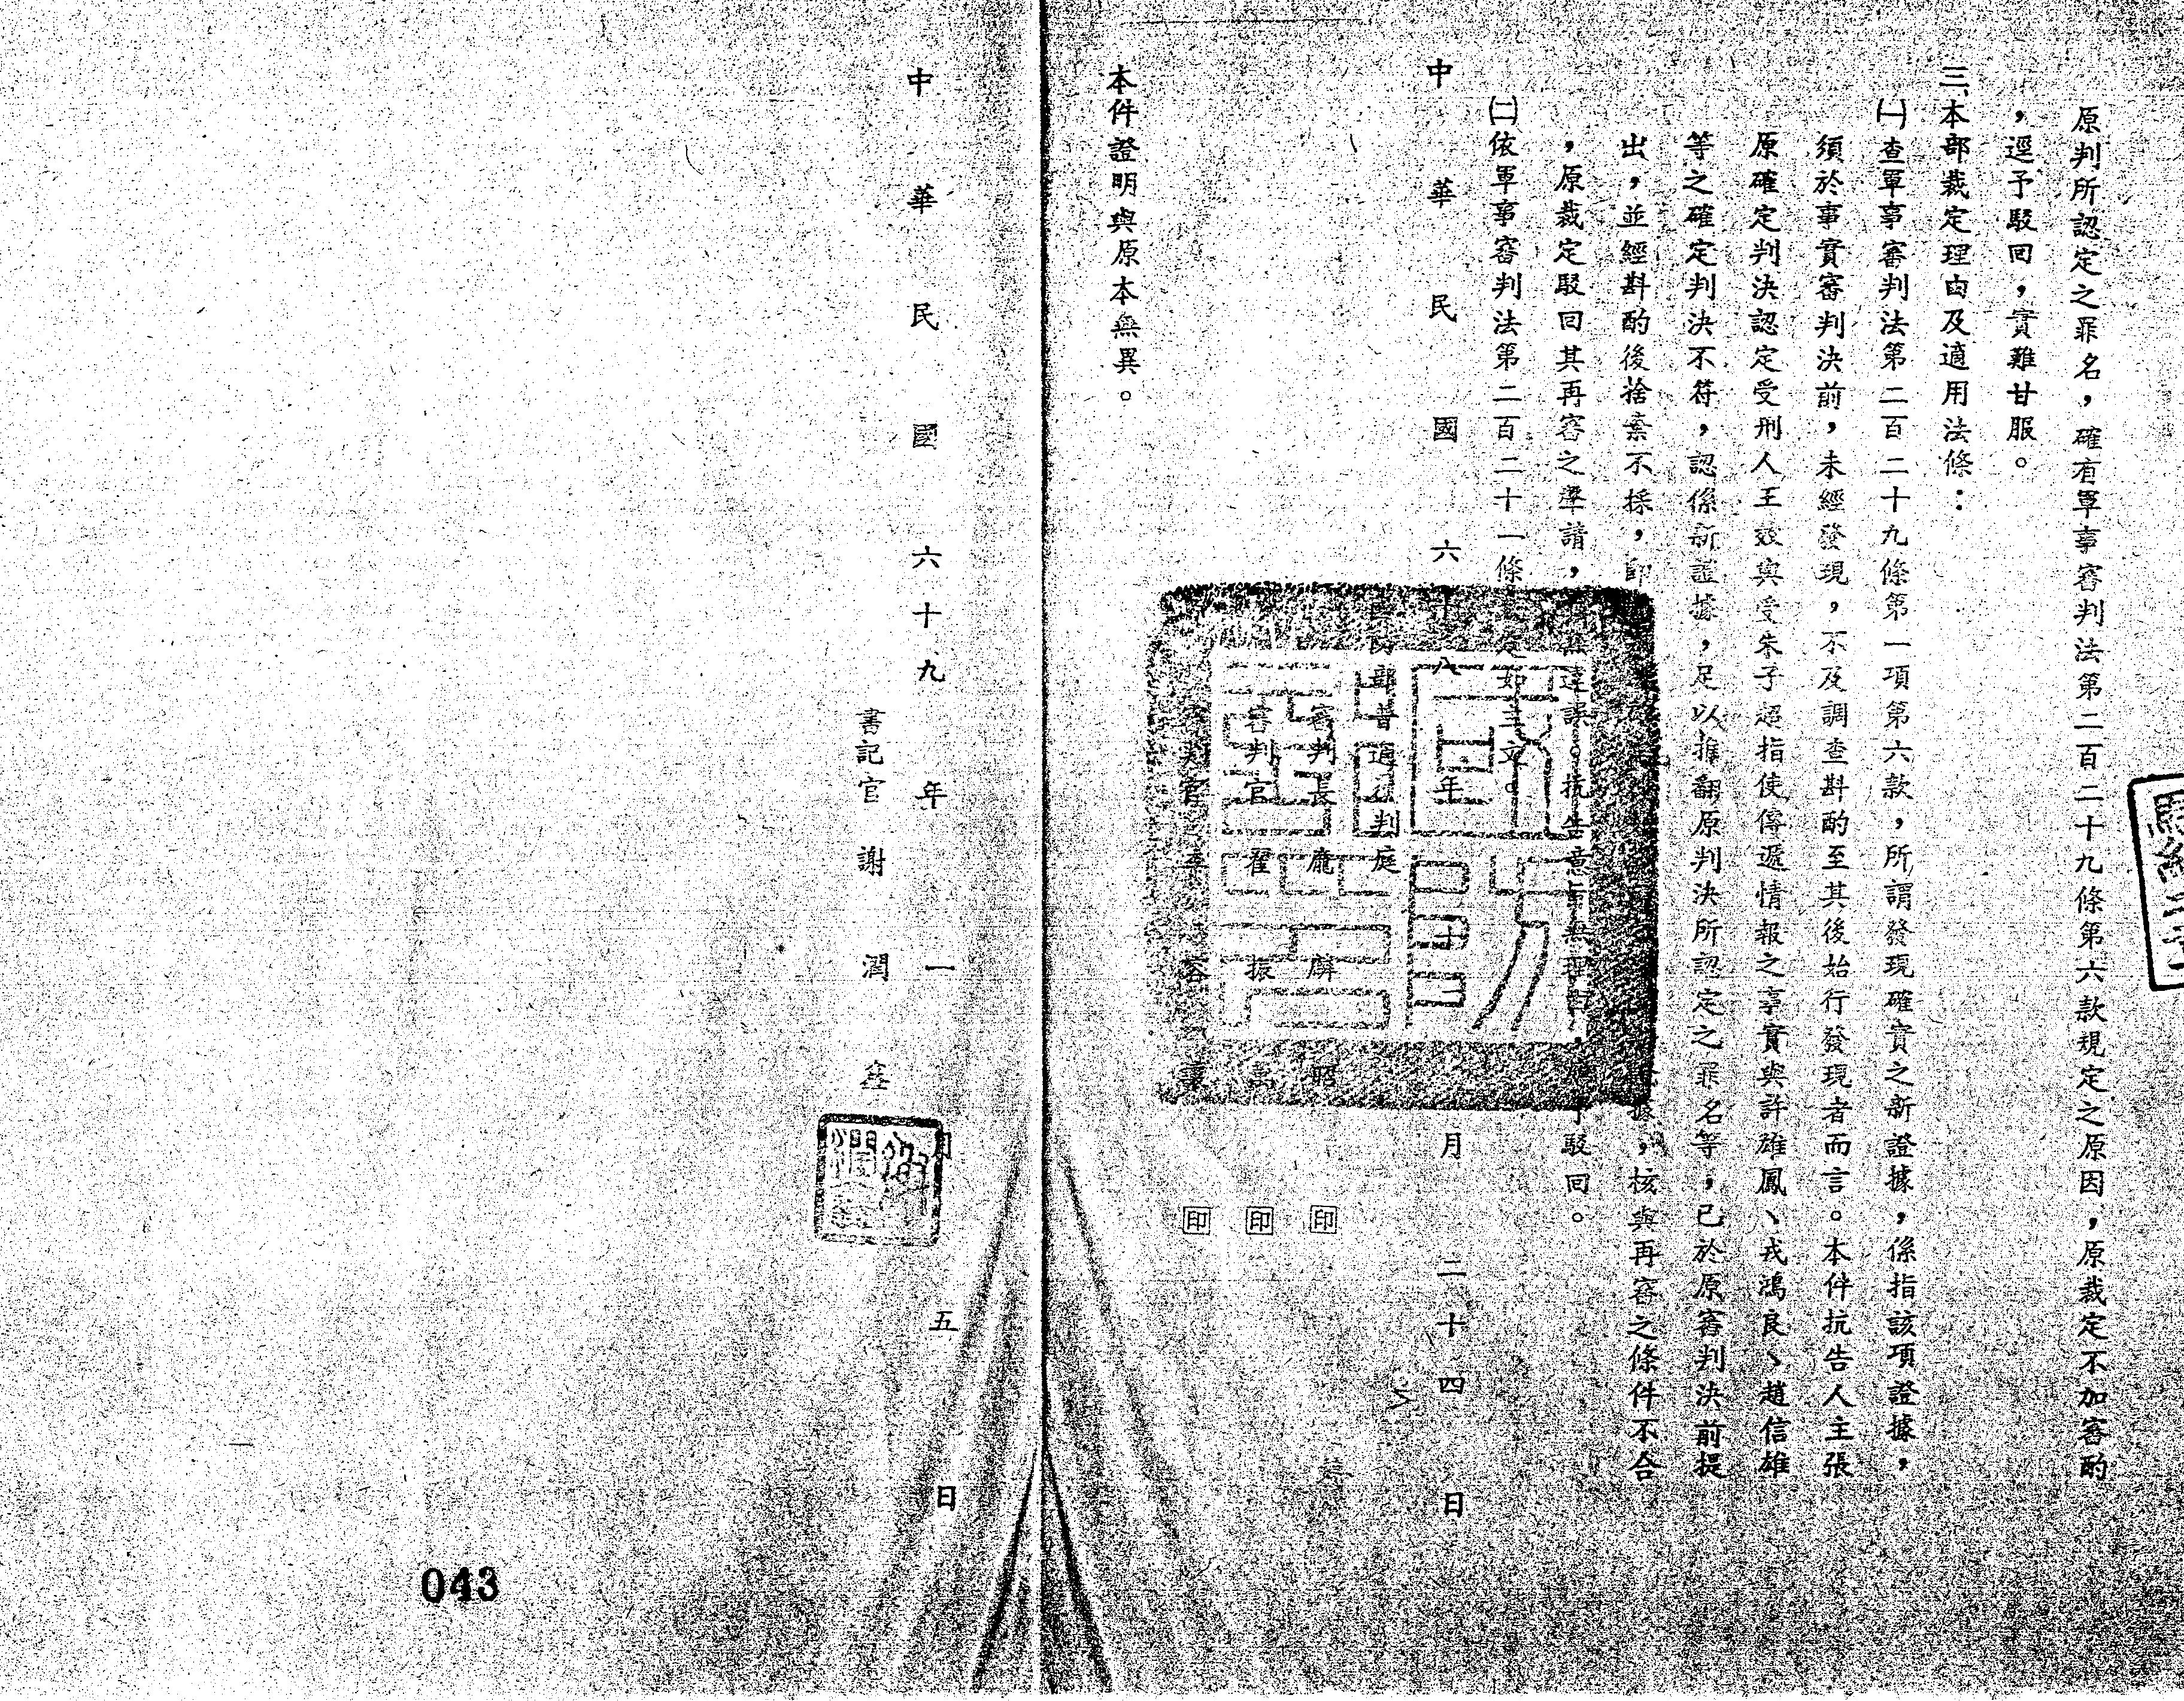 原判所認定之罪名，確有軍事審判法第二百二十九條第六款規定之原因，原裁定不加審酌
，逕予駁回，實難甘服。
三、本部裁定理由及適用法條：
㈠查軍事審判法第二百二十九條第一項第六款，所謂發現確實之新證據，係指該項證據，
須於事實審判決前，未經發現，不及調查斟酌至其後始行發現者而言。本件抗告人主張
原確定判決認定受刑人王效與受朱子超指使傳遞情報之事實與許雄鳳、戎鴻良、趙信雄
等之確定判決不符，認係新證據，足以推翻原判決所認定之罪名等，已於原審判決前提
出，並經斟酌後捨棄不採，即 據，核與再審之條件不合
，原裁定駁回其再審之聲請， 無違誤。抗告意旨無理由， 予駁回。
㈡依軍事審判法第二百二十一條 如主文。
中華民國六十八年十二月二十四日
國防部普通 判庭
審判長龐 昭 印
審判官翟振萬 印
審判官 容 印
本件證明與原本無異。
中華民國六十九年一月五日
書記官謝潤鑫
043